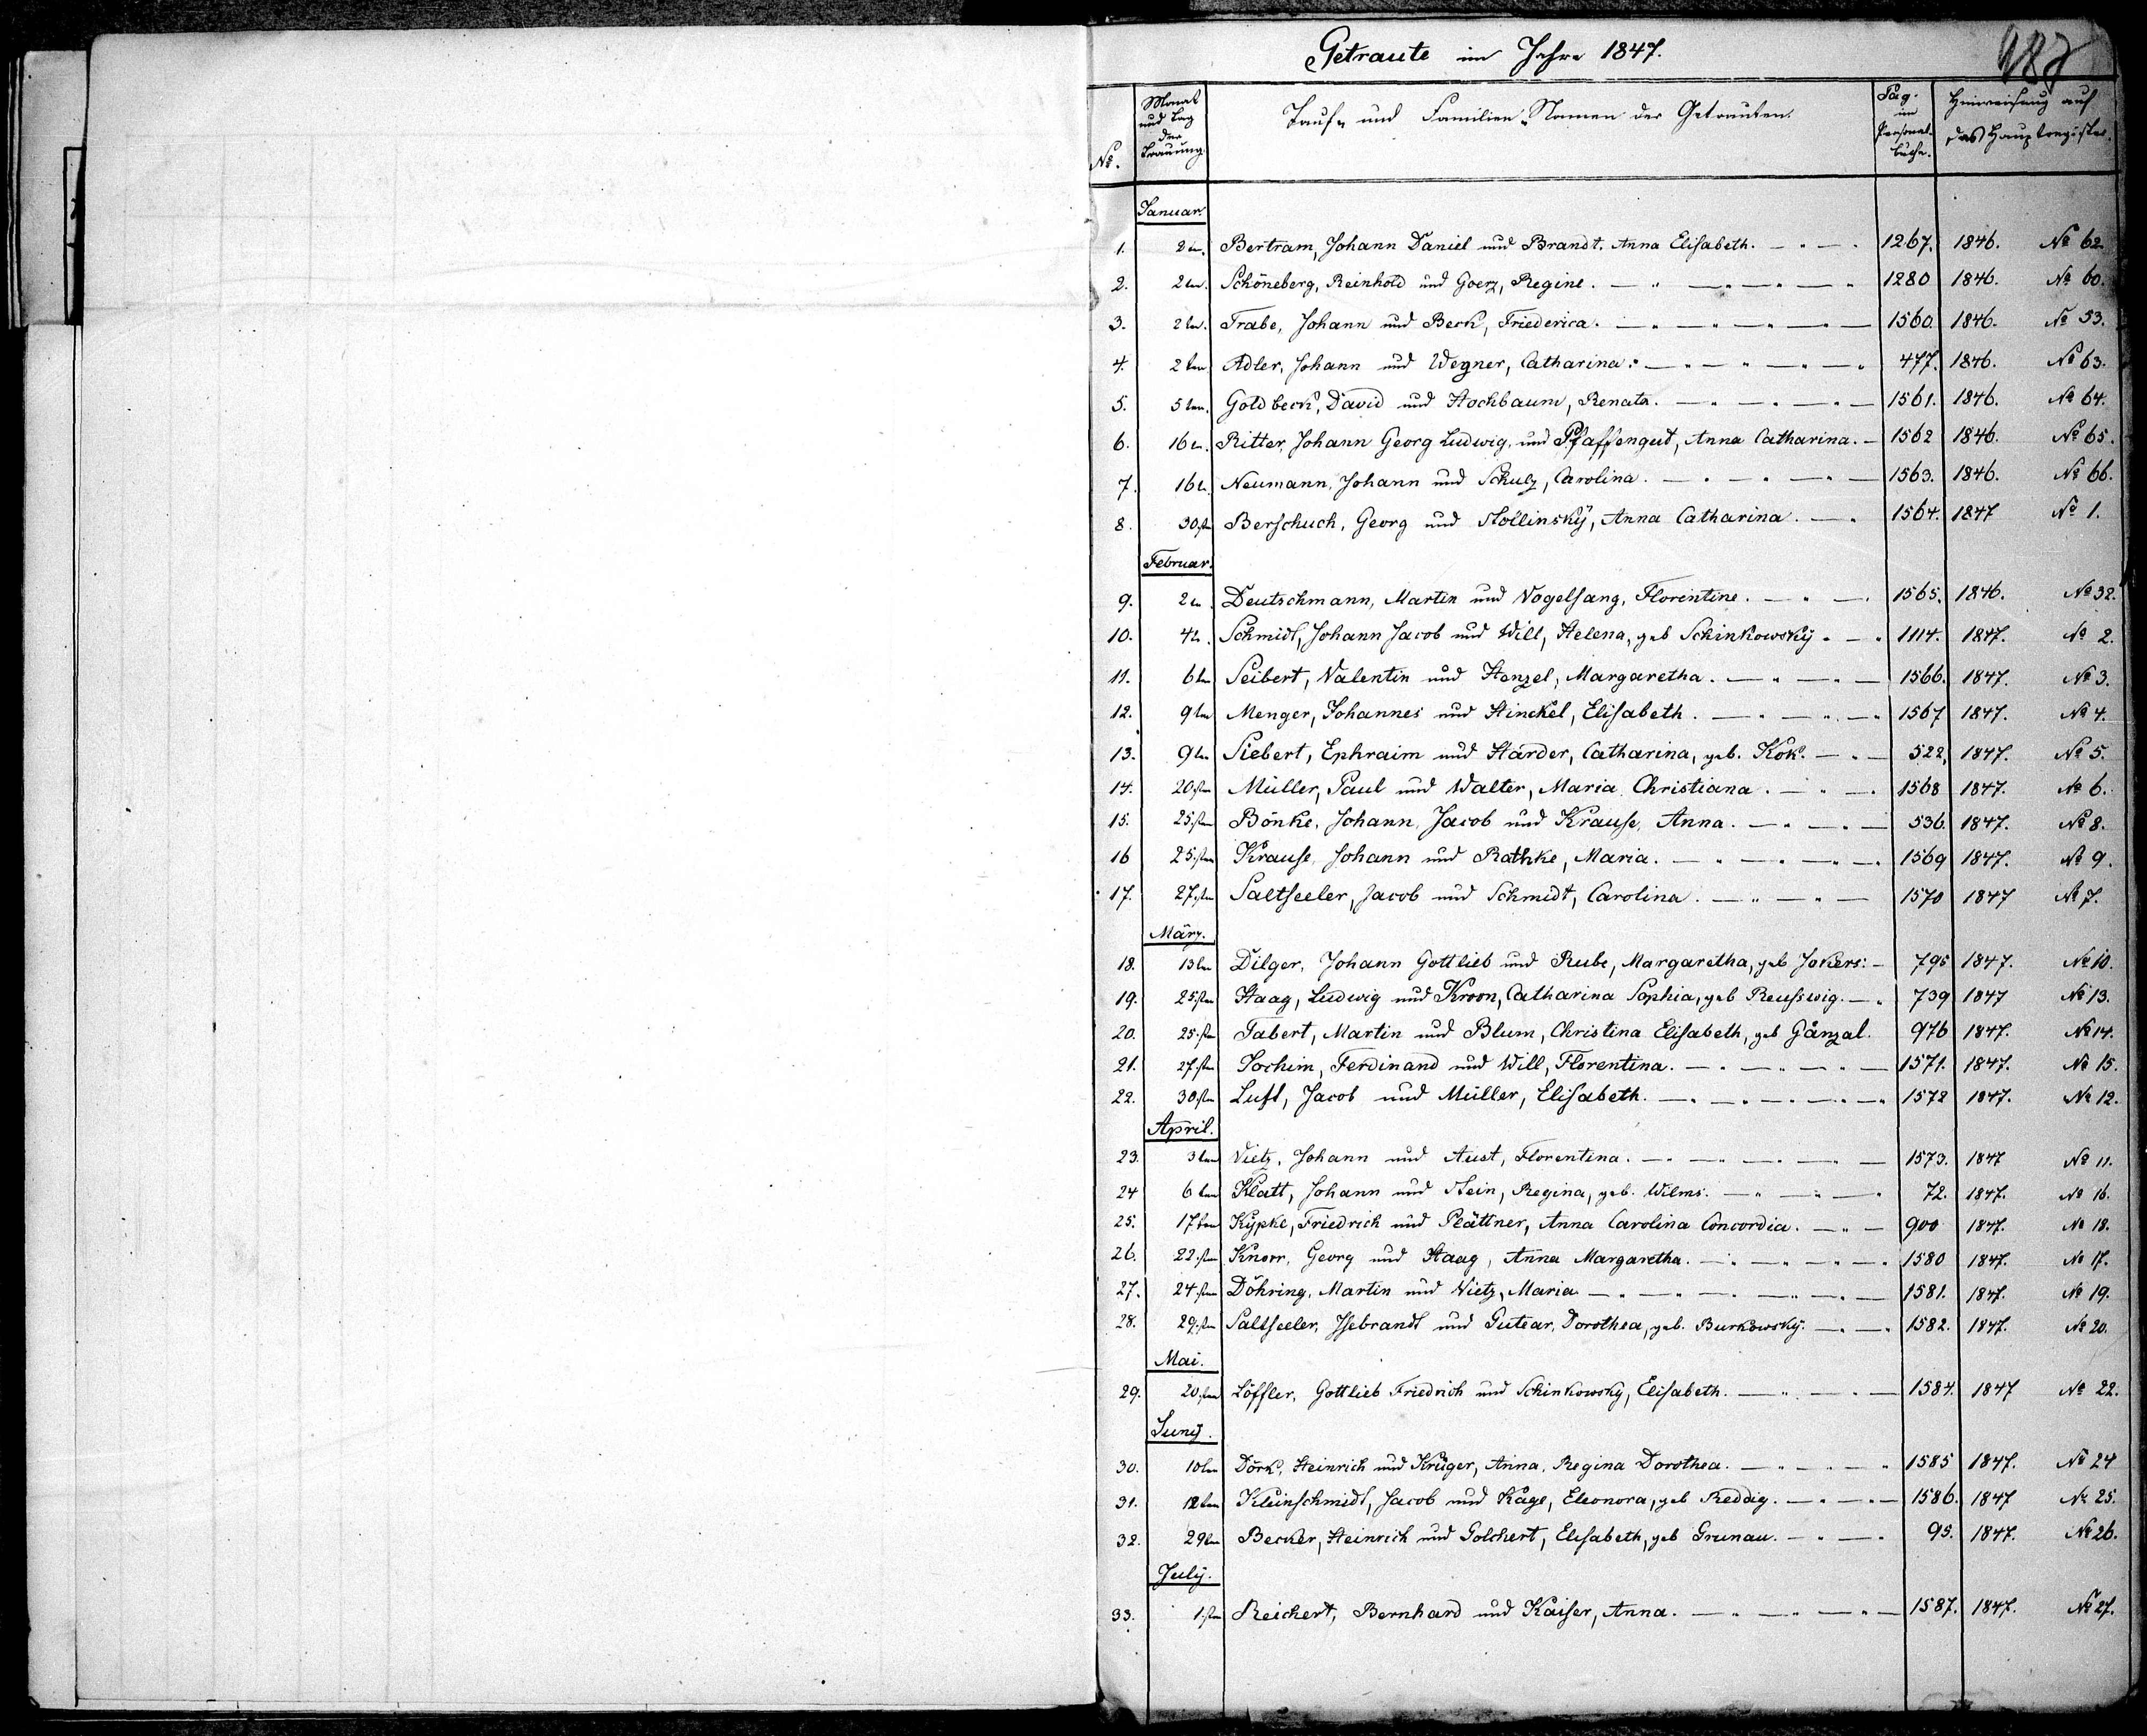 Getraute im Jahre 1847.
No.
Monat und Tag der Trauung.
Tauf- und Familien-Namen der Getrauten.
Pag. im Personal-buche.
Hinweisung auf das Hauptregister.
Januar.
1. 2ten. Bertram, Johann Daniel und Brandt, Anna Elisabeth. 1267. 1846. No 62
2. 2ten. Schöneberg, Reinhold und Goerz, Regine. 1280 1846. No 60.
3. 2ten. Trabe, Johann und Beck, Friederica. 1560. 1846. No 53.
4. 2ten Adler, Johann und Wegner, Catharina. 477. 1846. No 63.
5. 5ten. Goldbeck, David und Hochbaum, Renata. 1561. 1846. No 64.
6. 16ten. Ritter, Johann Georg Ludwig, und Pfaffengut, Anna Catharina. 1562 1846. No 65.
7. 16ten. Neumann, Johann und Schulz, Carolina. 1563. 1846. No 66.
8. 30.sten Berschuch, Georg und Anna Catharina. 1564. 1847 No 1.
Februar.
9. 2ten. Deutschmann, Martin und Vogelsang, Florentine. 1565. 1846. No 32.
10. 4ten. Schmidt, Johann Jacob und Will, Helena, geb Schinkowsky. 1114. 1847. No 2.
11. 6ten Seibert, Valentin und Henzel, Margaretha. 1566. 1847. No 3.
12. 9ten Menger, Johannes und Hinckel, Elisabeth. 1567 1847. No 4.
13. 9ten Siebert, Ephraim und Harder, Catharina, geb. Kok. 522, 1847. No 5.
14. 20.sten Müller, Paul und Walter, Maria Christiana. 1568 1847. No 6.
15. 25.sten Bönke, Johann Jacob und Krause, Anna. 536. 1847. No 8.
16 25.sten Krause, Johann und Rathke, Maria. 1569 1847. No 9.
17. 27.sten Saltseeler, Jacob und Schmidt, Carolina. 1570 1847 No 7.
März.
18. 13ten Dilger, Johann Gottlieb und Rube, Margaretha, geb Jokers. 795 1847. No 10.
19. 25.sten Haag, Ludwig und Kroon, Catharina Sophia, geb Reusswig. 739 1847 No 13.
20. 25.sten Tabert, Martin und Blum, Christina Elisabeth, geb Gänzal. 976 1847. No 14.
21. 27.sten Jochim, Ferdinand und Will, Florentina. 1571. 1847. No 15.
22. 30.sten Luft, Jacob und Müller, Elisabeth. 1572 1847. No 12.
April.
23. 3ten Vietz, Johann und Aust, Florentina. 1573. 1847 No 11.
24 6ten Klatt, Johann und Hein, Regina, geb. Wilms. 72. 1847. No 16.
25. 17ten Kypke, Friedrich und Plättner, Anna Carolina Concordia. 900 1847. No 18.
26. 22.sten Knorr, Georg und Haag, Anna Margaretha. 1580 1847. No 17.
27. 24.sten Döhring, Martin und Vietz, Maria. 1581. 1847. No 19.
28. 29.sten Saltseeler, Isebrandt und Gutear, Dorothea, geb. Burkowsky. 1582. 1847. No 20.
Mai.
29. 20.sten Löffler, Gottlieb Friedrich und Schinkowsky, Elisabeth. 1584. 1847 No 22.
Juny.
30. 10ten Dörk, Heinrich und Krüger, Anna Regina Dorothea. 1585 1847. No 24
31. 12ten Kleinschmidt, Jacob und Käge, Eleonora, geb Reddig. 1586. 1847 No 25.
32. 29ten Becker, Heinrich und Golchert, Elisabeth, geb Grunau. 95. 1847. No 26.
July.
33. 1.sten Reichert, Bernhard und Kaiser, Anna. 1587. 1847. No 27.